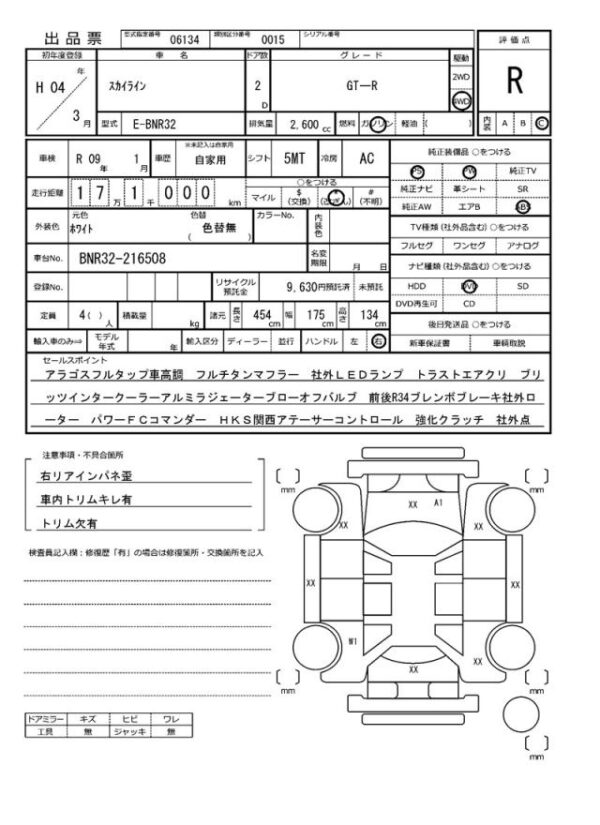 出品票 型式指定番号 06134 類別区分番号 0015 シリアル番号
初年度登録 車名 ドア数 グレード 駆動 評価点
H 04 年 3 月 スカイライン 2 D GT-R 2WD 4WD R
型式 E-BNR32 排気量 2,600 cc 燃料 ガソリン 軽油 ( ) 内装 A B C
車検 R 09 年 1 月 車歴 ※未記入は自家用 自家用 シフト 5MT 冷房 AC
純正装備品 ○をつける
PS PW 純正TV
純正ナビ 革シート SR
純正AW エアB ABS
走行距離 1 7 万 1 千 0 0 0 km ○をつける マイル $ (交換) * (改ざん) # (不明)
外装色 元色 ホワイト 色替 ( 色替無 ) カラーNo. 内装色
TV種類 (社外品含む) ○をつける
フルセグ ワンセグ アナログ
車台No. BNR32-216508 名変期限 月 日
ナビ種類 (社外品含む) ○をつける
HDD DVD SD
DVD再生可 CD
登録No. リサイクル預託金 9,630円預託済 未預託
定員 4 ( ) 人 積載量 kg 諸元 長さ 454 cm 幅 175 cm 高さ 134 cm
後日発送品 ○をつける
新車保証書 車輌取説
輸入車のみ⇒ モデル年式 年 輸入区分 ディーラー 並行 ハンドル 左 右
セールスポイント
アラゴスフルタップ車高調 フルチタンマフラー 社外LEDランプ トラストエアクリ ブリ
ッツインタークーラーアルミラジェーターブローオフバルブ 前後R34ブレンボブレーキ社外ロ
ーター パワーFCコマンダー HKS関西アテーサーコントロール 強化クラッチ 社外点
注意事項・不具合箇所
右リアインパネ歪
車内トリムキレ有
トリム欠有
検査員記入欄：修復歴「有」の場合は修復箇所・交換箇所を記入
ドアミラー キズ ヒビ ワレ
工具 無 ジャッキ 無
mm mm
XX A1
XX XX
XX XX XX
W1 XX
XX
mm mm
mm